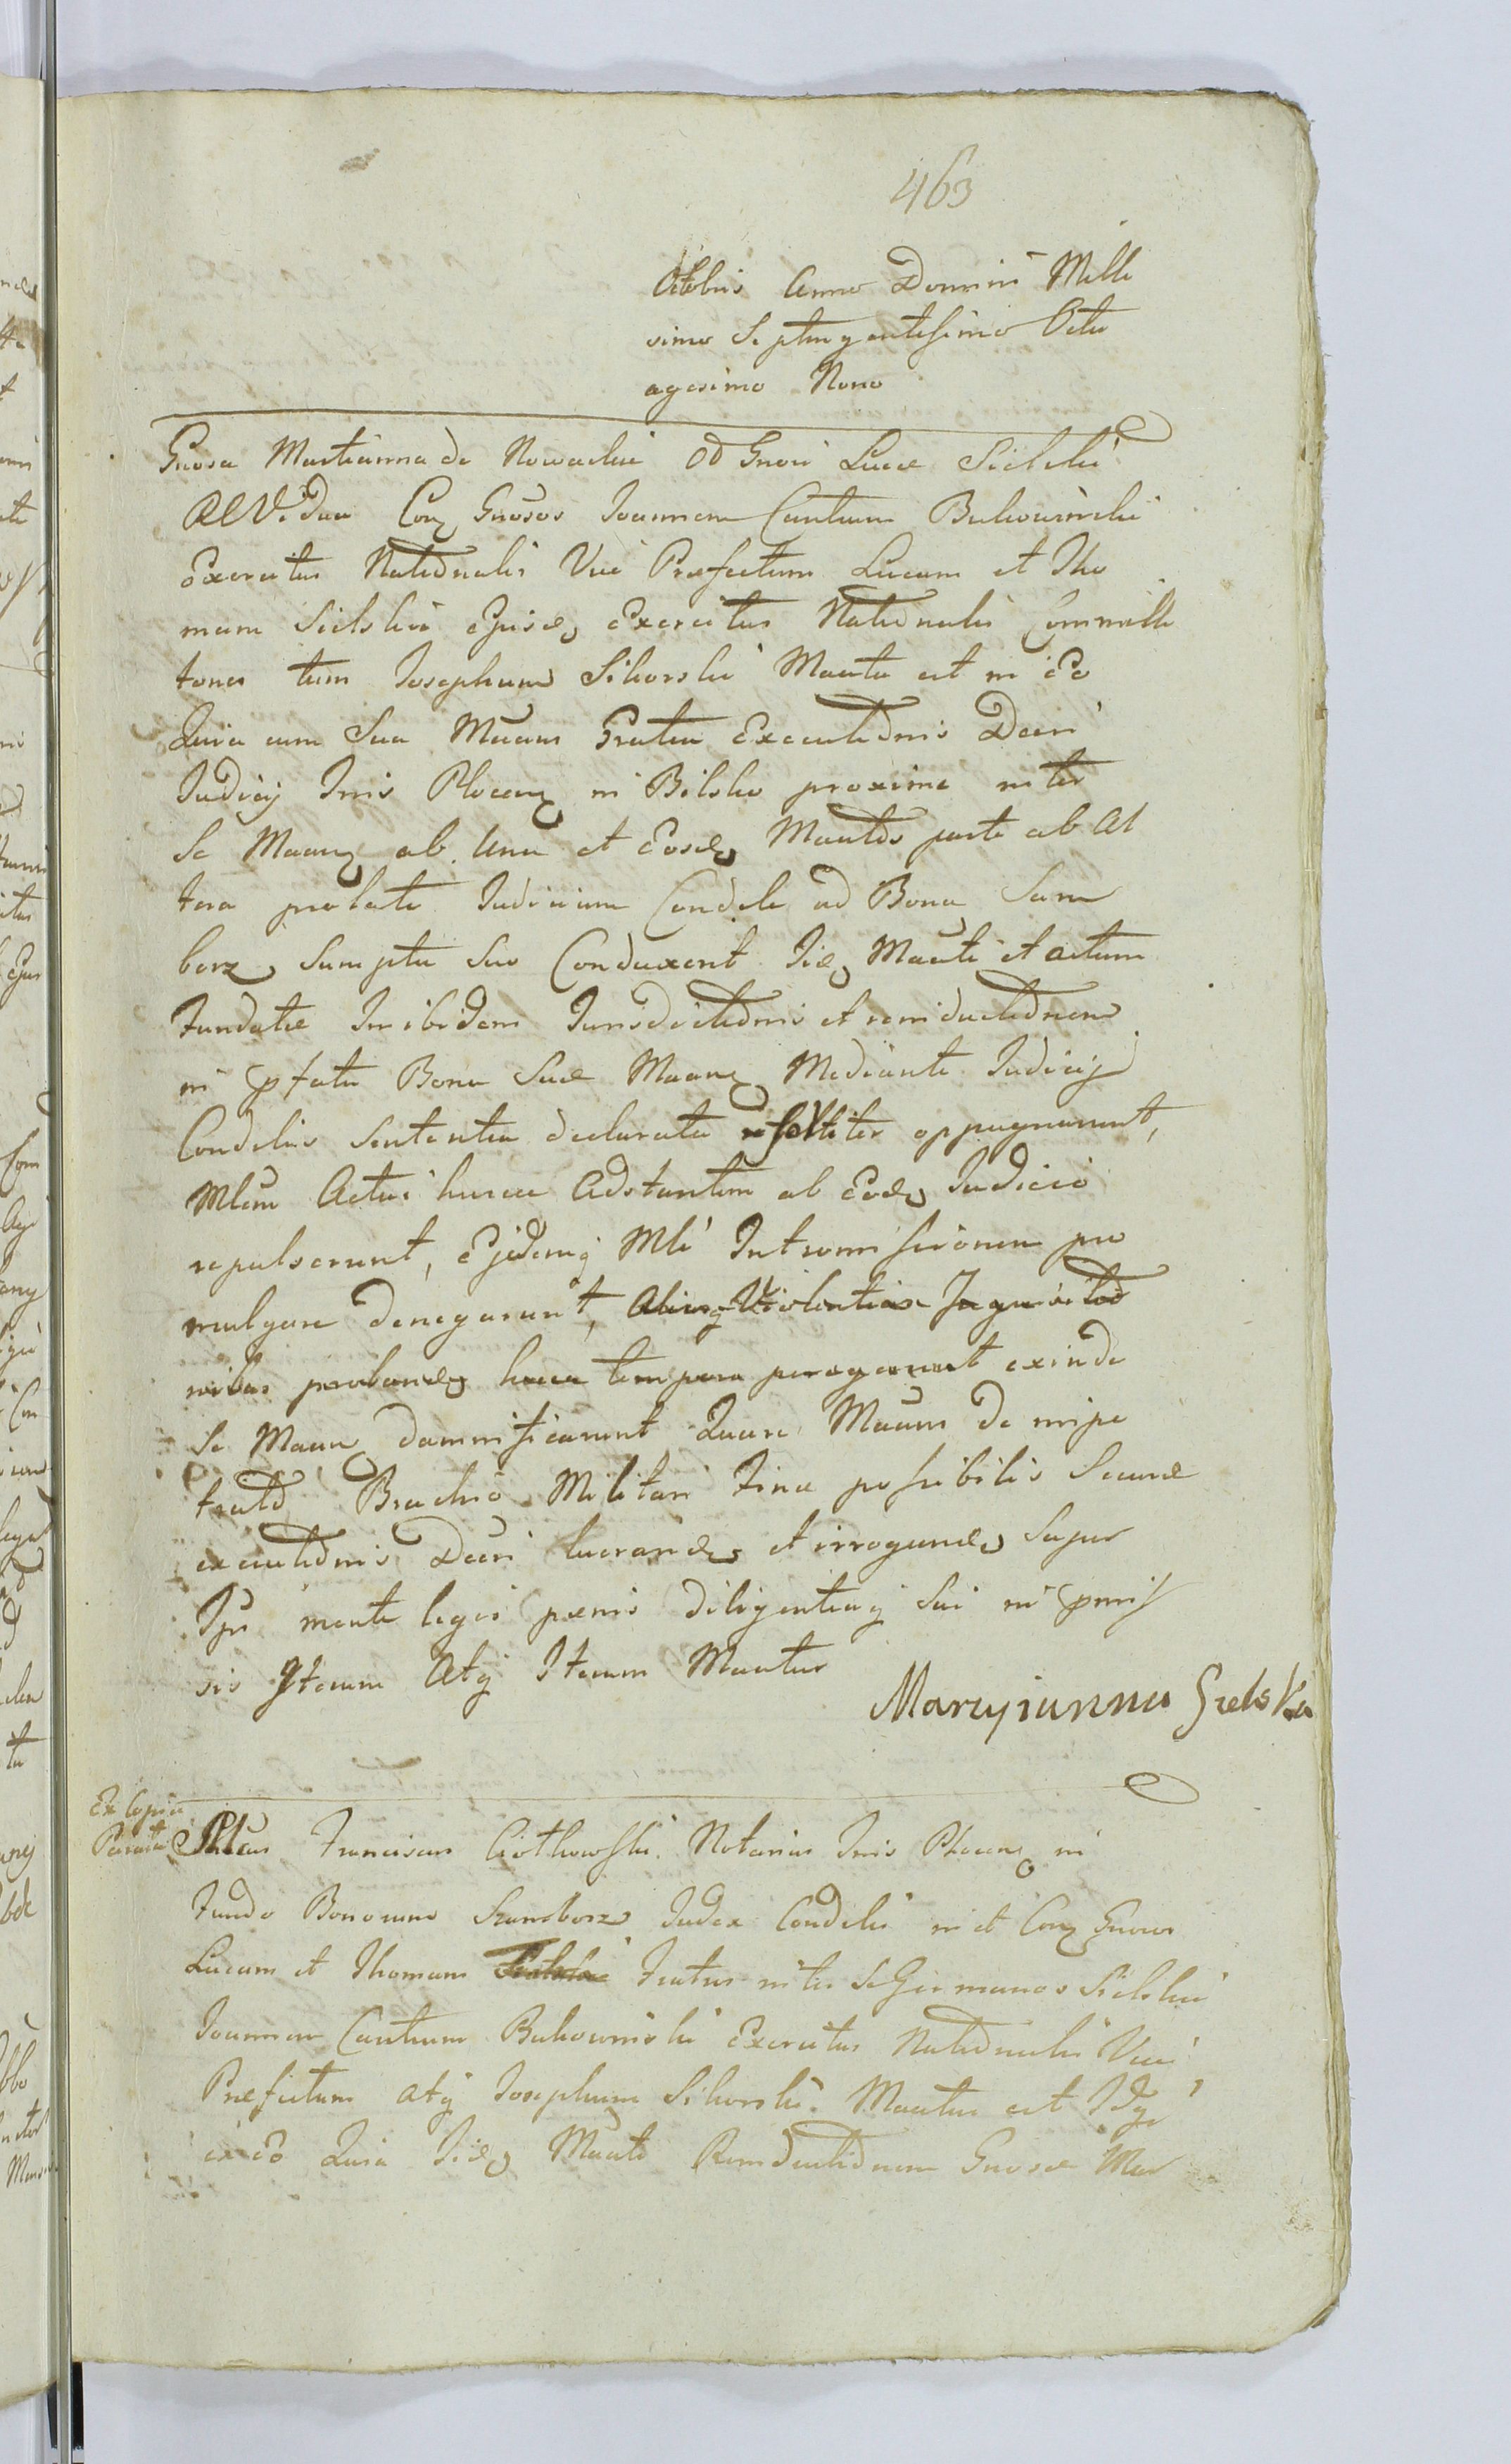 463
Octobris Anno Domini Mille
simo Septingentesimo Octu
agesimo Nono
Gnosa Martianna de Nowackie od Gnosi Lucæ Sielski
RelVidua Con Gnosos Joannem Cantium Bukowinski
Exercitus Nationalis Vice Præfectum Lucam et Tho
mam Sielskie ejusd Exercitus Nationalis Commili
tones tum Josephum Sikorski Manta est in eo
Quia cum Sua Mãam Gratia Executionis Decri
Judicij Tris Plocen in Bilsko proxime inter
Se Maam ab una et eosd Mantos parte ab al
tera prolati Judicium Condele ad Bona Sam
borz Sumptu suo Conduxerit Iid Manti et actum
Fundatæ Inibidem Jurisdictionis et reinductionem
in pfata Bona Suæ Maam Mediante Judicij
Condelis Sententia declarata oppugnarunt,
Mlem Actui huicce Adstantem ab eod Judicio
repulserunt, Ejidemq Mli Intromissionem pro
mulgare denegarunt, Aliasq Violentias Inquisitio
nibus proband hucce tempora peregerunt exinde
Se Maam damnificarunt Quare Maam de impe
trato Brachio Militari Fine possibilis Securæ
executionis Decri lucrand et irrogand super
Ips mente legis pænis diligentiaq sui in pmis
sis Iterum Atq Iterum Mantur
Maryianna Sielska
Ex Copia
Parata
Idem Franciscus Ciotkowski Notarius Tris Plocen in
Fundo Bonorum Szamborz Judex Condelis in et Con Gnosos
Lucam et Thomam Fratres inter se Germanos Sielskie
Joannem Cantium Bukowinski Exercitus Nationalis Vice
Præfectum atq Josephum Sikorski Mantus est Idq
ex eo Quia Iid Manti Reinductionem Gnosæ Mar